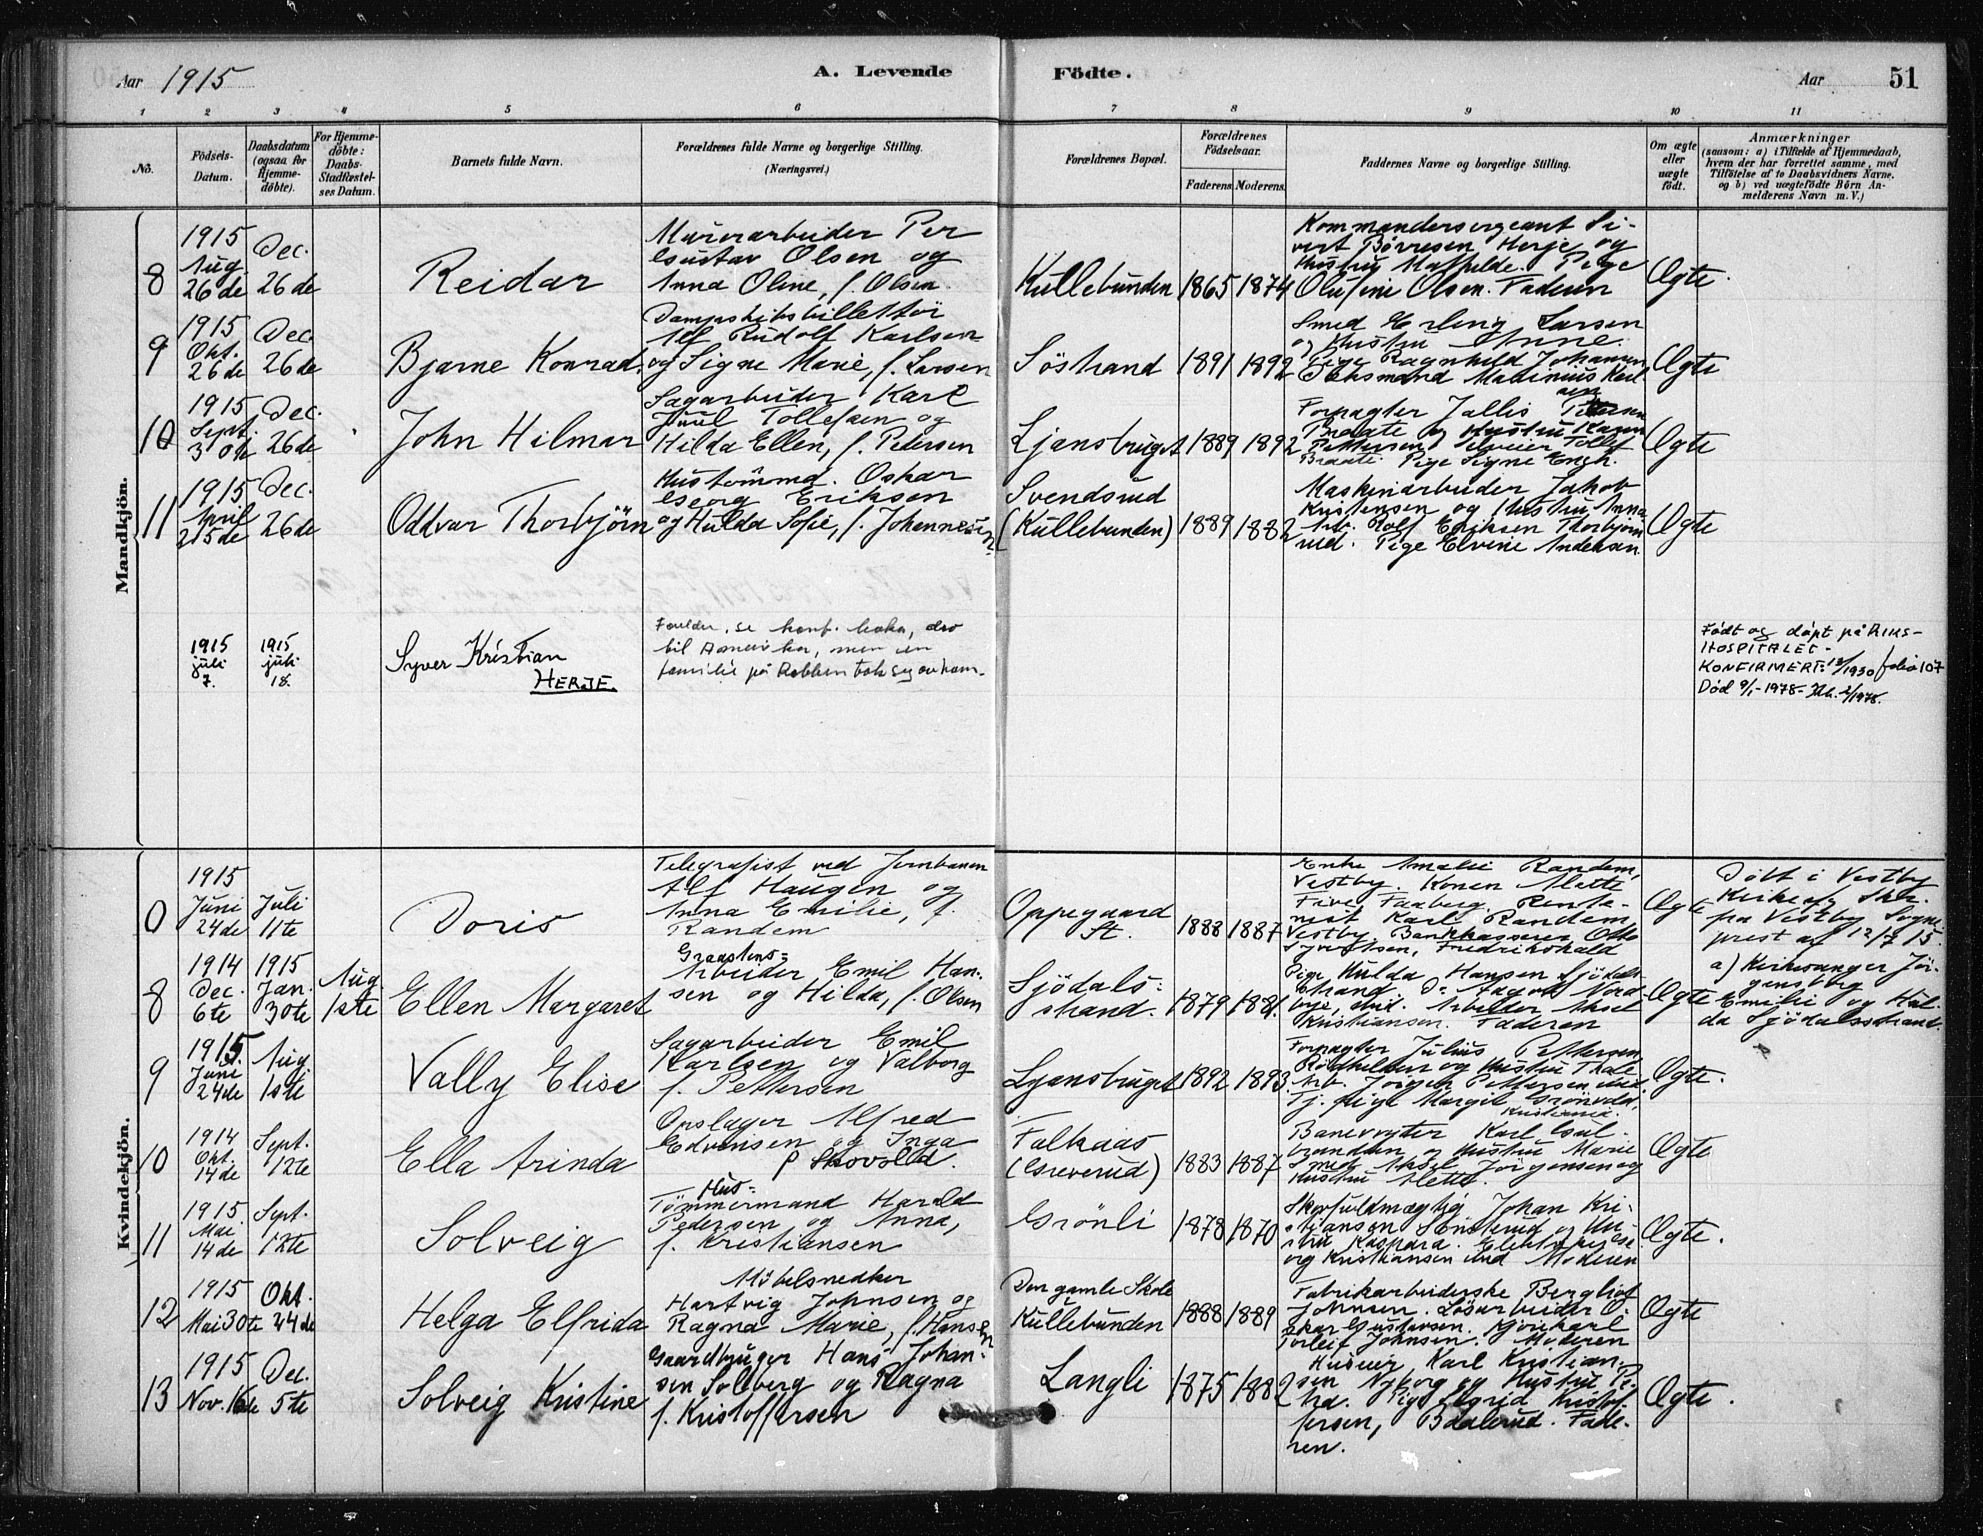 Aar 1915
A. Levende Födte.
Aar
51
1 2 3 4 5 6 7 8 9 10 11
No.
Födsels-Datum.
Daabsdatum (ogsaa for Hjemme-döbte).
For Hjemme-döbte: Daabs-Stadfæstel-ses Datum.
Barnets fulde Navn.
Forældrenes fulde Navne og borgerlige Stilling.
(Næringsvei.)
Forældrenes Bopæl.
Forældrenes Födselsaar.
Faderens. Moderens.
Faddernes Navne og borgerlige Stilling.
Om ægte eller uægte födt.
Anmærkninger
(saasom: a) i Tilfælde af Hjemmedaab,
hvem der har forrettet samme, med
Tilföielse af to Daabsvidners Navne,
og b) ved uægtefödte Börn An-
melderens Navn m. V.)
Mandkjön.
8
1915
Aug.
26de
Dec.
26de
Reidar
Murerarbeider Per
Gustav Olsen og
Anna Oline, f. Olsen.
Kullebunden
1865 1874
Kommandersergeant Si-
vert Börresen Herje og
Hustru Mathilde. Pige
Olufine Olsen. Faderen
Ægte.
9
1915
Okt.
26de
Dec.
26de
Bjarne Konrad
Dampskibsbillettör
Alf Rudolf Karlsen
og Signe Marie, f. Larsen
Söstrand
1891 1892
Smed Erling Larsen
og Hustru Anne.
Pige Ragnhild Johansen
Ægte
10
1915
Sept.
Dec.
26de
John Hilmar
Sagarbeider Karl
Juul Tollefsen og
Hilda Ellen, f. Petersen
Ljansbruget
1889 1892
Forpagter
Braate og Hustru Karen
Pettersen Tollef
Braate. Pige Signe Engh.
Ægte
11
1915
April
25de
Dec.
26de
Oddvar Thorbjörn
Hustömmd. Oskar
Georg Eriksen
og Hulda Sofie, f. Johannesen
Svendsrud
(Kullebunden)
1889 1882
Maskinarbeider Jakob
Kristensen og Hustru Anna
Arb. Rolf Eriksen Thorbjörn
rud. Pige Elvine Andersen
Ægte
1915
juli
7.
1915
juli
18.
Syver Kristian
HERJE.
Forelder, se konf. boka, dro
til Amerika, men en
familie på Kolben tok seg av ham.
Født og døpt på RIKS-
HOSPITALET -
KONFIRMERT 1930 folio 107
Død 9/1-1978 -
Kvindekjön.
0
1915
Juni
24de
Juli
11te
Doris
Telegrafist ved Jernbanen
Alf Haugen og
Anna Emilie, f.
Randem
Oppegaard
St.
1888 1887
Enke Amalie Randem,
Vestby. Konen Mette
Five Faaberg. Rente-
nist Karl Randem,
Vestby. Bankkasserer Otto
Syvertsen, Fredrikshald
Ægte
Döbt i Vestby
Kirke
fra Vestby Sogne-
prest af 12/7 15.
8
1914
Dec.
6te
1915
Jan.
30te
Aug.
1ste
Ellen Margaret
Graastens-
Arbeider Emil Han-
sen og Hilda, f. Olsen
Sjödals-
strand.
1879 1881.
Pige Hulda Hansen Sjödals-
strand. Do Aagot Nord-
bye, Arbeider Aksel
Kristiansen. Faderen
Ægte
a) Kirkesanger Jör-
gensborg
Emilie og Hul-
da Sjödalsstrand.
9
1915
Juni
24de
Aug
1ste
Vally Elise
Sagarbeider Emil
Karlsen og Valborg
f. Pettersen
Ljansbruget
1892 1893.
Forpagter Julius Pettersen
og Hustru Thale
Arb. Jörgen Pettersen
Tj. pige Margit Grönvold,
Kristiania.
Ægte.
10
1914
Okt.
14de
Sept.
12te
Ella Arinda
Opslager Alfred
Edvinsen og Inga
f. Skovold.
Falkaas
(Greverud)
1883 1887
Banevogter Karl Gul-
brandsen og Hustru Marie
Smed Aksel Jörgensen og
Hustru Mette.
Ægte
11
1915
Mai
14de
Sept.
12te
Solveig
Hus-
Tömmermand Harald
Pedersen og Anna,
f. Kristiansen
Grönli
1878 1870
Skogfuldmægtig Johan Kri-
stiansen Sönsterud og Hu-
stru Kaspara.
Moderen
Ægte.
12
1915
Mai 30te
Okt.
24de
Helga Elfrida
Möbelsnedker
Hartvig Johnsen og
Ragna Marie, f. Hansen
Den gamle Skole
Kullebunden
1888 1889
Fabrikarbeiderske Bergliot
Johnsen. Lösarbeider O-
skar Gustavsen. Kjörekarl
Torleif Johnsen. Moderen
Ægte
13
1915
Nov. 16de
Dec.
5te
Solveig Kristine
Gaardbruger Hans Johan-
sen Solberg og Ragna
f. Kristoffersen
Langli
1875 1882
Huseier Karl Kristian-
sen Nyborg og Hustru
Pige Sigrid Kristof-
fersen, Baalerud. Fade-
ren.
Ægte.